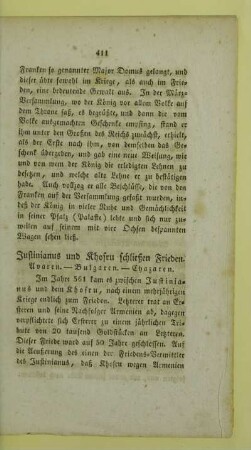 411
Franken so genannter Major Domus gelangt, und
dieser übte sowohl im Kriege, als auch im Frie-
den, eine bedeutende Gewalt aus. In der März-
Versammlung, wo der König vor allem Volke auf
dem Throne saß, es begrüßte, und dann die vom
Volke ausgemachten Geschenke empfing, stand er
ihm unter den Großen des Reichs zunächst, erhielt,
als der Erste nach ihm, von demselben das Ge-
schenk übergeben, und gab eine Weisung, wie
und von wem der König die erledigten Lehen zu
besetzen, und welche alte Lehne er zu bestätigen
habe. Auch vollzog er alle Beschlüsse, die von
den Franken auf der Versammlung gefaßt wurden, in-
deß der König in vieler Ruhe und Gemächlichkeit
in seiner Pfalz (Palaste) lebte und sich nur zu-
weilen auf seinem mit vier Ochsen bespannten
Wagen sehen ließ.
Justinianus und Khosru schließen Frieden.
Avaren. — Bulgaren. — Chazaren.
Im Jahre 561 kam es zwischen Justinia-
nus und dem Khosru, nach einem mehrjährigen
Kriege endlich zum Frieden. Letzterer trat an Er-
steren und seine Nachfolger Armenien ab, dagegen
verpflichtete sich Ersterer zu einem jährlichen Tri-
bute von 20 tausend Goldstücken an Letzteren.
Dieser Friede ward auf 50 Jahre geschlossen. Auf
die Aeußerung des einen der Friedens-Vermittler
des Justinianus, daß Khosru wegen Armenien